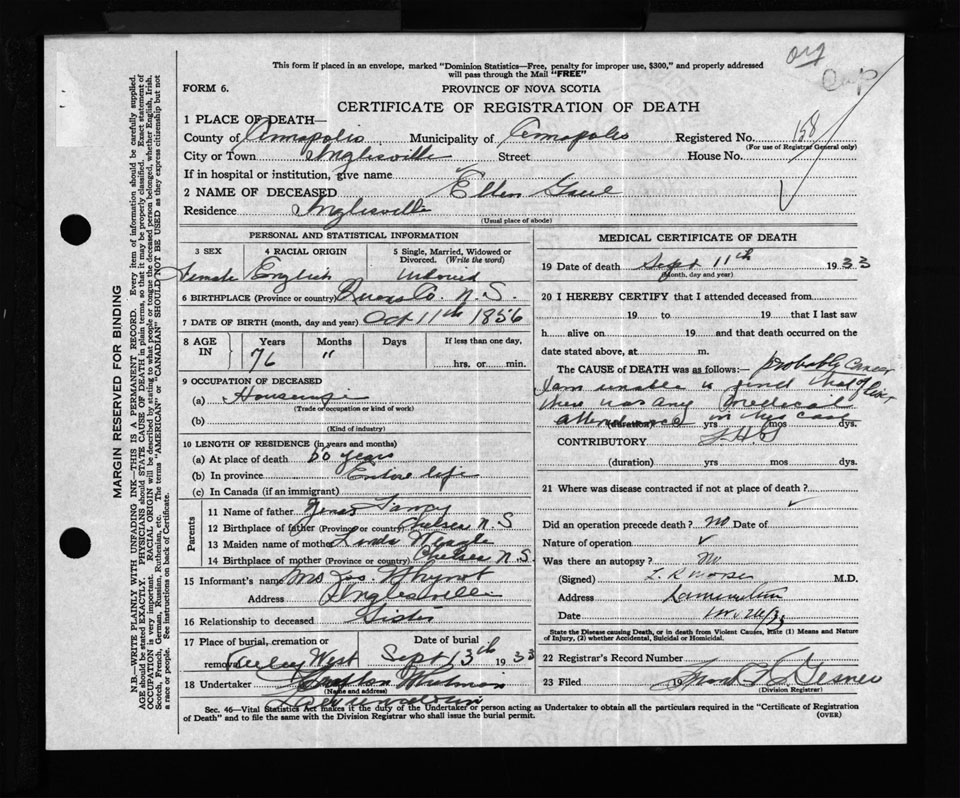 org
This form if placed in an envelope, marked "Dominion Statistics—Free, penalty for improper use, $300," and properly addressed
will pass through the Mail "FREE"
FORM 6.
PROVINCE OF NOVA SCOTIA
CERTIFICATE OF REGISTRATION OF DEATH
1 PLACE OF DEATH—
County of Annapolis Municipality of Annapolis Registered No. 158
(For use of Registrar General only)
City or Town Inglisville Street House No.
If in hospital or institution, give name
2 NAME OF DECEASED Ellen Gaul
Residence Inglisville
(Usual place of abode)
PERSONAL AND STATISTICAL INFORMATION
3 SEX 4 RACIAL ORIGIN 5 Single, Married, Widowed or Divorced. (Write the word)
Female English Widowed
6 BIRTHPLACE (Province or country) Queens Co. N.S.
7 DATE OF BIRTH (month, day and year) Oct 11th 1856
8 AGE IN Years Months Days If less than one day,
76 11 hrs. or min.
9 OCCUPATION OF DECEASED
(a) Housewife
(Trade or occupation or kind of work)
(b)
(Kind of industry)
10 LENGTH OF RESIDENCE (in years and months)
(a) At place of death 60 years
(b) In province Entire life
(c) In Canada (if an immigrant)
Parents
11 Name of father
12 Birthplace of father (Province or country) Chelsea N.S
13 Maiden name of mother
14 Birthplace of mother (Province or country) Chelsea N.S.
15 Informant's name Mrs Jos.
Address Inglesville
16 Relationship to deceased Sister
17 Place of burial, cremation or removal West
Date of burial Sept 13th 1933
18 Undertaker
(Name and address)
MEDICAL CERTIFICATE OF DEATH
19 Date of death Sept 11th 1933
(Month, day and year)
20 I HEREBY CERTIFY that I attended deceased from
19 to 19 that I last saw
h alive on 19 and that death occurred on the
date stated above, at m.
The CAUSE of DEATH was as follows:— probably cancer of liver
I am unable to find that
there was any medical
attendance in this case
(duration) yrs mos dys.
CONTRIBUTORY
(duration) yrs mos dys.
21 Where was disease contracted if not at place of death?
Did an operation precede death? No Date of
Nature of operation
Was there an autopsy? No
(Signed) L. R Morse M.D.
Address Lawrencetown
Date Nov 24/33
State the Disease causing Death, or in death from Violent Causes, state (1) Means and Nature
of Injury, (2) whether Accidental, Suicidal or Homicidal.
22 Registrar's Record Number
23 Filed 19
(Division Registrar)
Sec. 46—Vital Statistics Act makes it the duty of the Undertaker or person acting as Undertaker to obtain all the particulars required in the "Certificate of Registration
of Death" and to file the same with the Division Registrar who shall issue the burial permit.
(OVER)
MARGIN RESERVED FOR BINDING
N.B.—WRITE PLAINLY WITH UNFADING INK—THIS IS A PERMANENT RECORD. Every item of information should be carefully supplied.
AGE should be stated EXACTLY. PHYSICIANS should STATE CAUSE OF DEATH in plain terms, so that it may be properly classified. Exact statement of
OCCUPATION is very important. RACIAL ORIGIN will be described by stating to what people or tongue the deceased person belonged, whether English, Irish,
Scotch, French, German, Russian, Ruthenian, etc. The terms "AMERICAN" or "CANADIAN" SHOULD NOT BE USED as they express citizenship but not
a race or people. See instructions on back of Certificate.